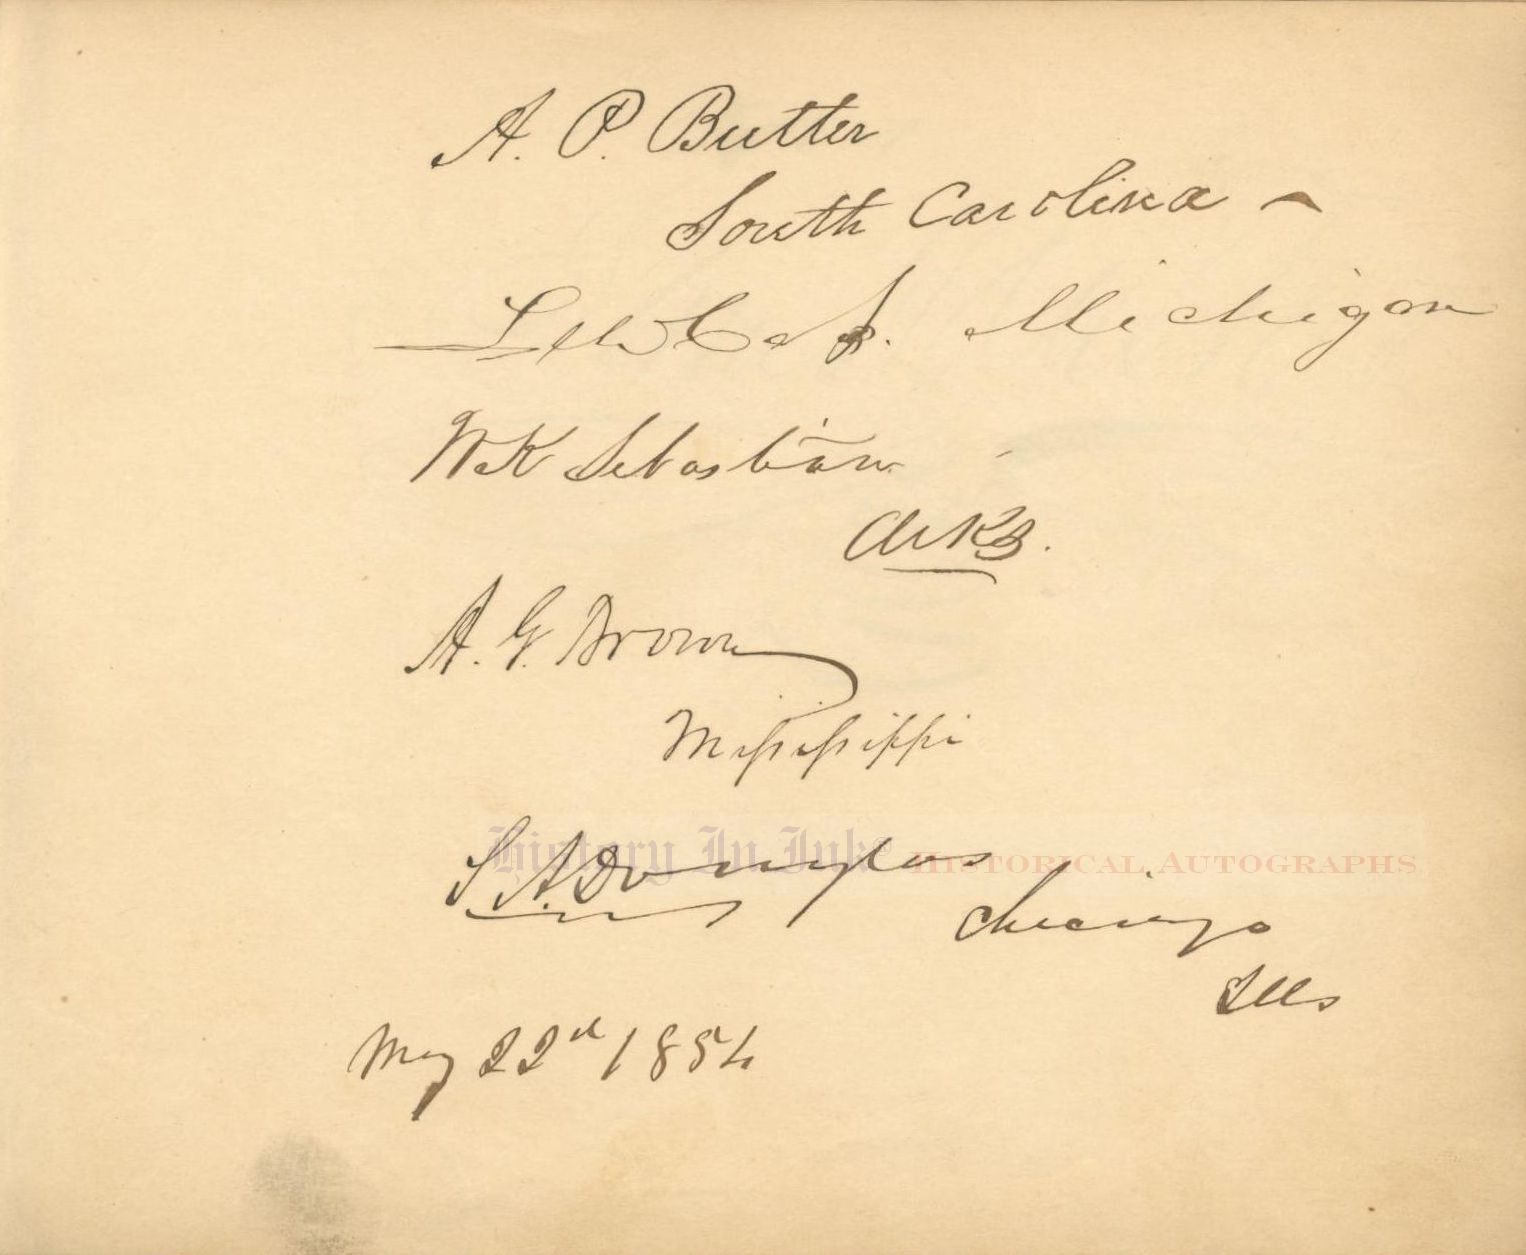 A. P. Butler
South Carolina -
Lew Cass. Michigan
W K Sebastian
Arks.
A. G. Brown
Mississippi
History In Ink HISTORICAL AUTOGRAPHS
S. A. Douglas
Chicago
Ills
May 22d 1854